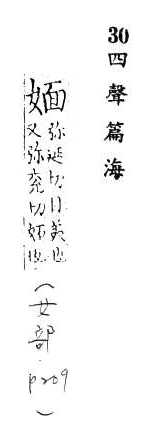 30四聲篇海
媔
弥延切目美也
又弥兖切妬也
（女部．p209）